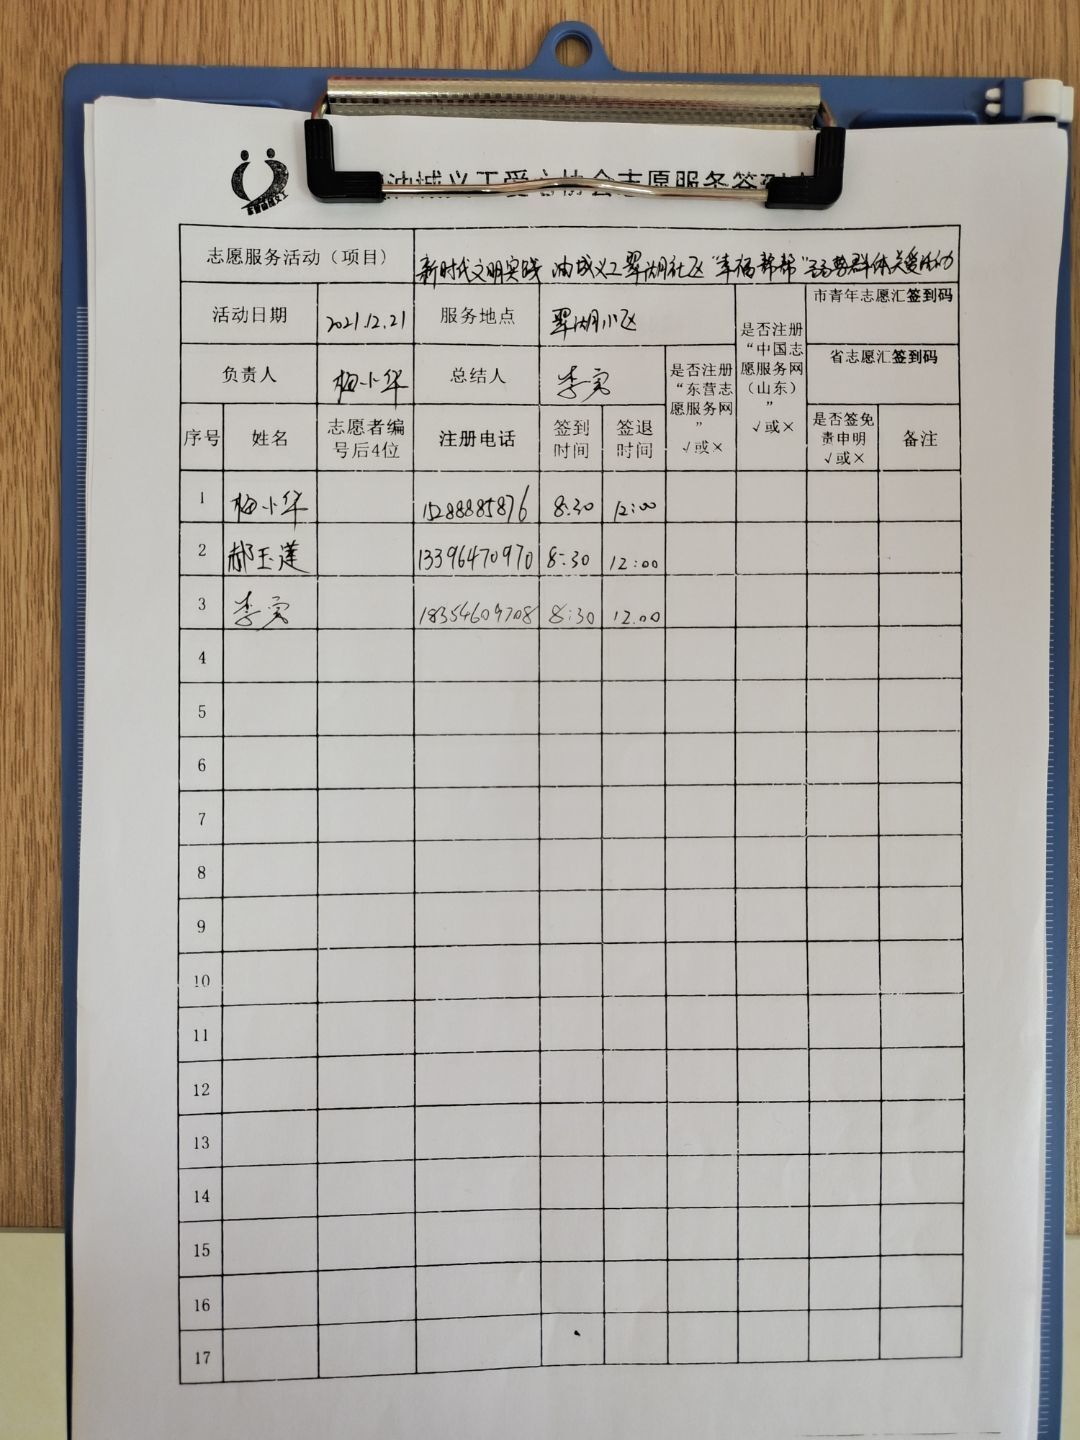 油城义工爱心协会志愿服务签到
志愿服务活动（项目） 新时代文明实践 油城义工翠湖社区“幸福帮帮”弱势群体关爱活动
活动日期 2021.12.21 服务地点 翠湖小区 是否注册“中国志愿服务网（山东）” √或× 市青年志愿汇签到码
省志愿汇签到码
负责人 梅小华 总结人 李宾 是否注册“东营志愿服务网” √或×
序号 姓名 志愿者编号后4位 注册电话 签到时间 签退时间 是否签免责申明 √或× 备注
1 梅小华 15288885876 8:30 12:00
2 郝玉莲 13396470970 8:30 12:00
3 李宾 18354609708 8:30 12.00
4
5
6
7
8
9
10
11
12
13
14
15
16
17